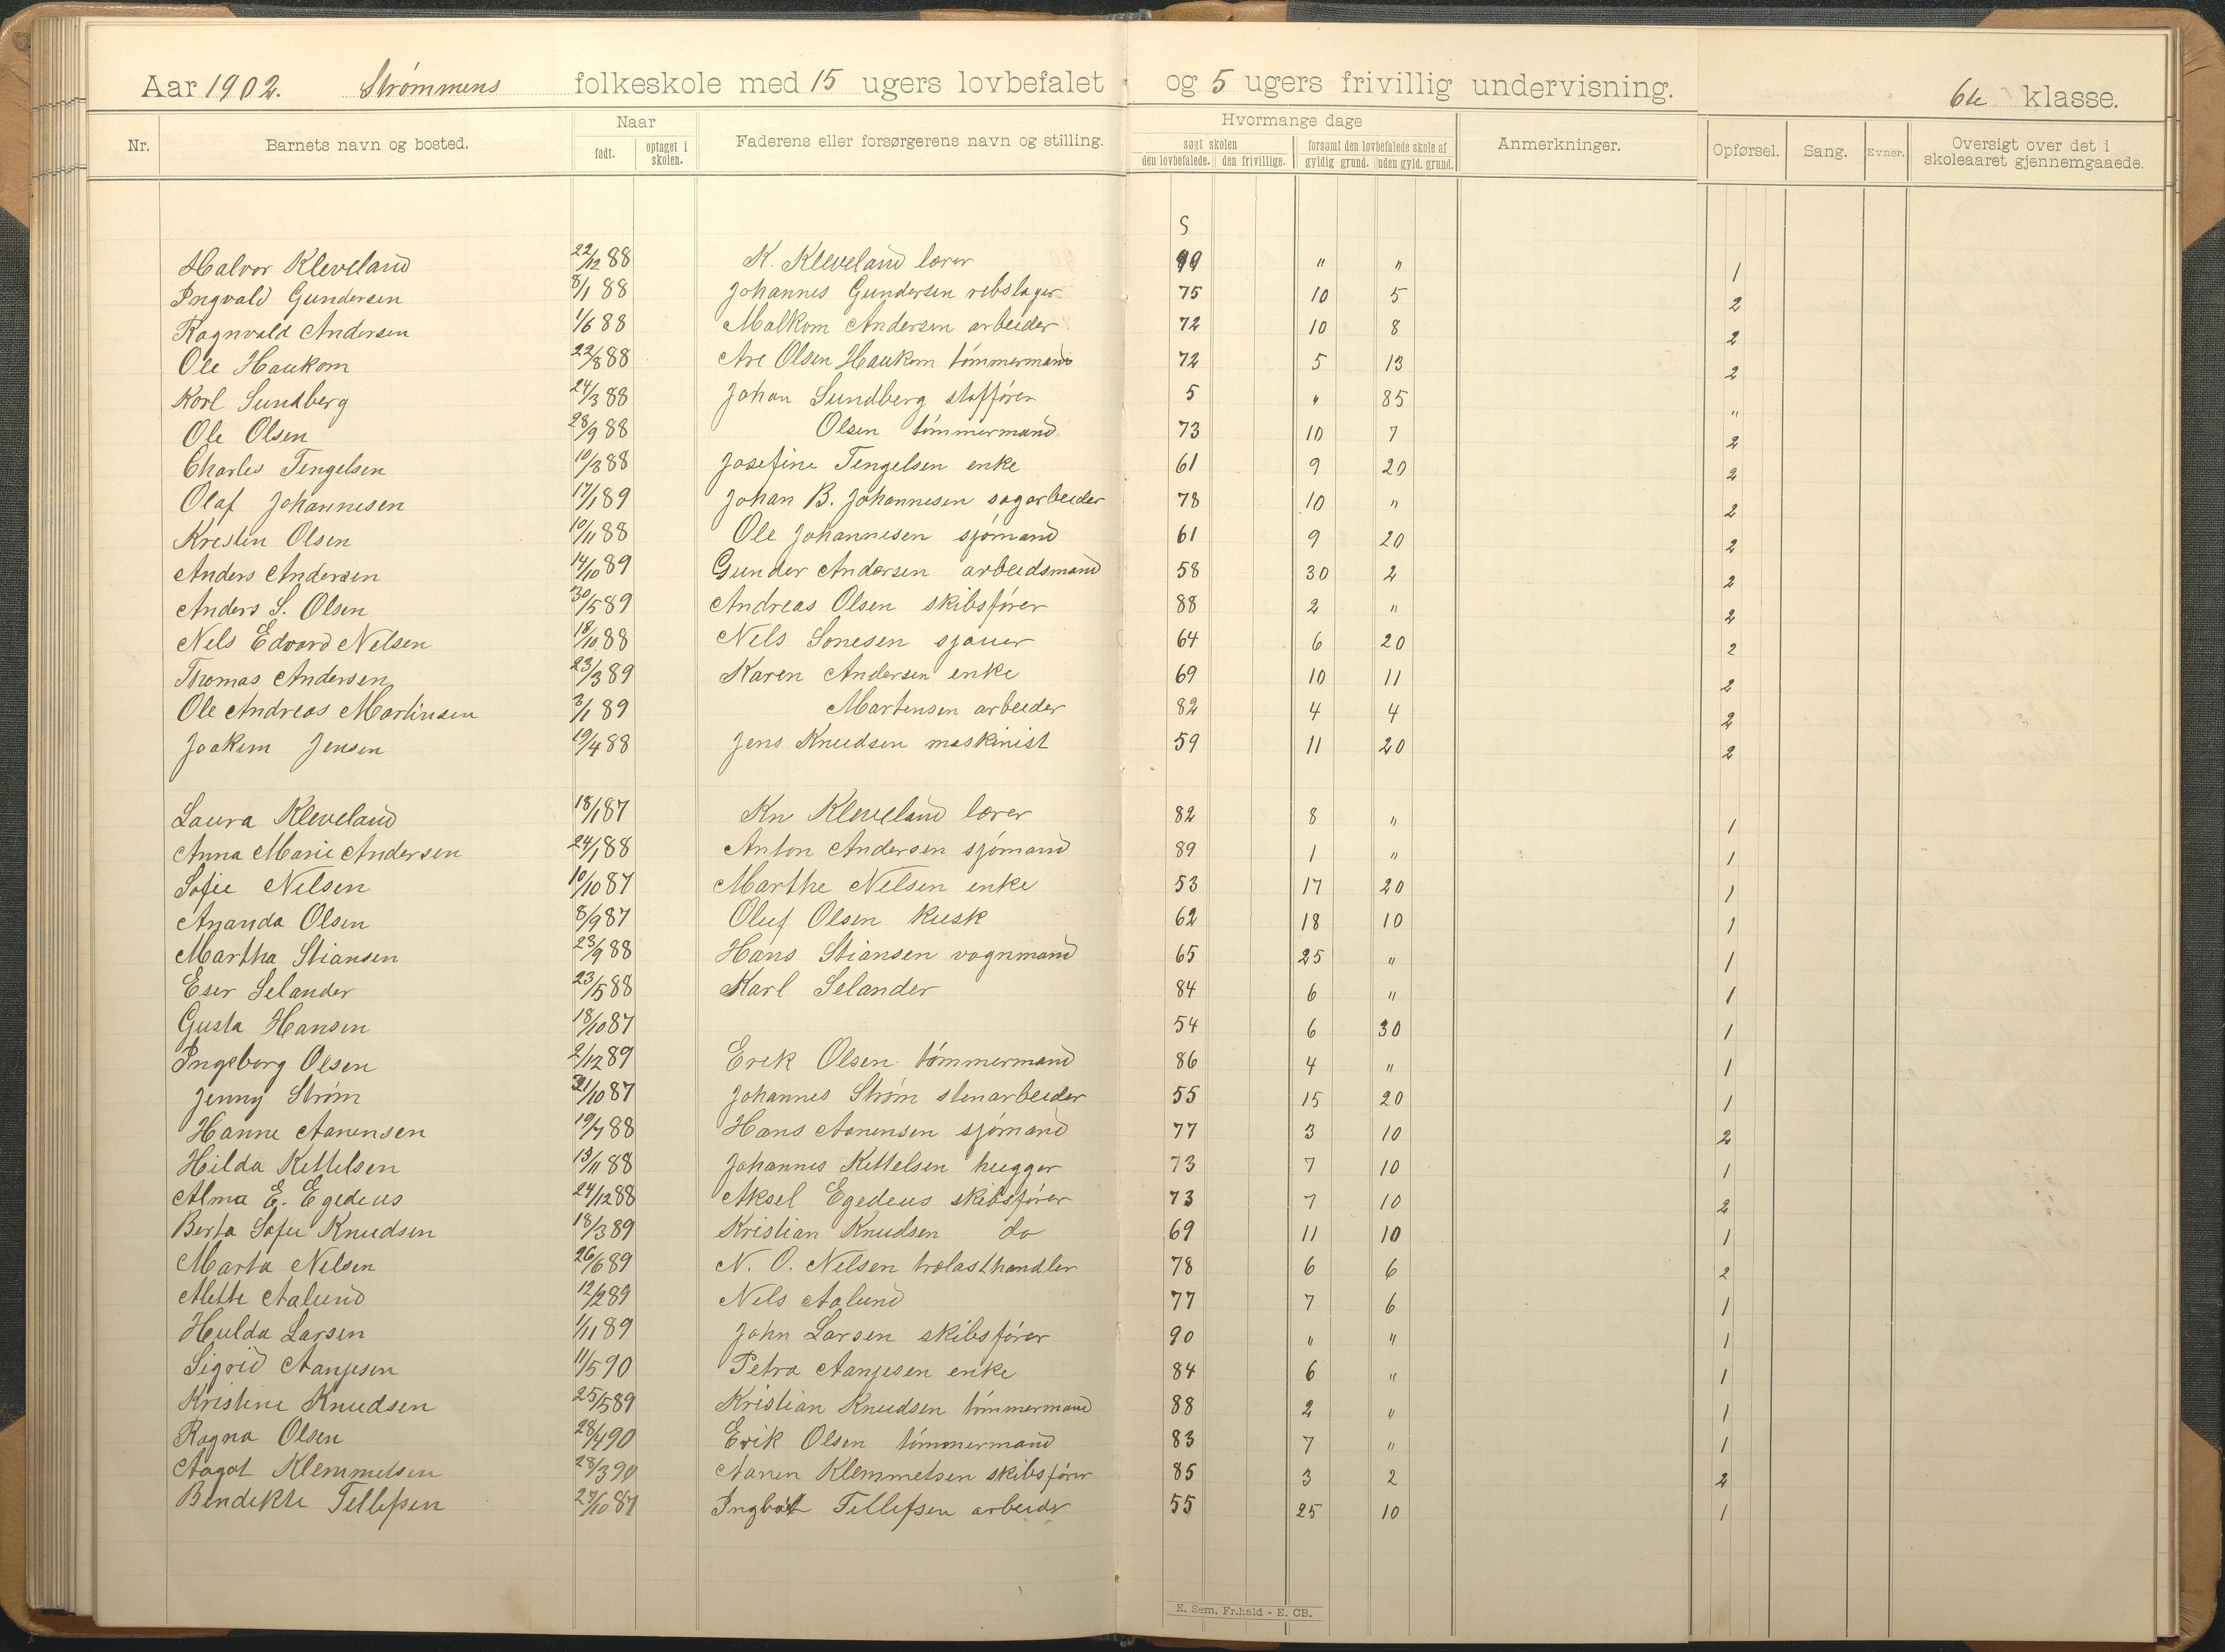 Aar 1902. Strømmens folkeskole med 15 ugers lovbefalet og 5 ugers frivillig undervisning. 6te klasse.
Nr. Barnets navn og bosted. Naar født. optaget i skolen. Faderens eller forsørgerens navn og stilling. Hvormange dage søgt skolen den lovbefalede. den frivillige. forsømt den lovbefalede skole af gyldig grund. uden gyld. grund. Anmerkninger. Opførsel. Sang. Evner. Oversigt over det i skoleaaret gjennemgaaede.
S
Halvor Kleveland 22/12 88 K. Kleveland lærer 99 " " 1
Ingvald Gundersen 8/1 88 Johannes Gundersen rebslager 75 10 5 2
Ragnvald Andersen 1/6 88 Malkom Andersen arbeider 72 10 8 2
Ole Haukom 22/8 88 Are Olsen Haukom tömmermand 72 5 13 2
Karl Sundberg 24/3 88 Johan Sundberg stafförer 5 " 85 "
Ole Olsen 28/9 88 Olsen tömmermand 73 10 7 2
Charles Tengelsen 10/3 88 Josefine Tengelsen enke 61 9 20 2
Olaf Johannesen 17/1 89 Johan B. Johannesen sagarbeider 78 10 " 2
Kresten Olsen 10/11 88 Ole Johannesen sjömand 61 9 20 2
Anders Andersen 14/10 89 Gunder Andersen arbeidsmand 58 30 2 2
Anders S. Olsen 30/5 89 Andreas Olsen skibsförer 88 2 " 2
Nels Edvard Nelsen 18/10 88 Nels Sonesen sjauer 64 6 20 2
Thomas Andersen 23/3 89 Karen Andersen enke 69 10 11 2
Ole Andreas Martinsen 3/1 89 Martensen arbeider 82 4 4 2
Joakim Jensen 19/4 88 Jens Knudsen maskinist 59 11 20 2
Laura Kleveland 18/1 87 Kn Kleveland lærer 82 8 " 1
Anna Marie Andersen 24/1 88 Anton Andersen sjömand 89 1 " 1
Sofie Nelsen 10/10 87 Marthe Nelsen enke 53 17 20 1
Ananda Olsen 8/9 87 Oluf Olsen kusk 62 18 10 1
Martha Stiansen 23/9 88 Hans Stiansen vognmand 65 25 " 1
Eser Selander 23/5 88 Karl Selander 84 6 " 1
Gusta Hansen 18/10 87 54 6 30 1
Ingeborg Olsen 2/12 89 Erek Olsen tömmermand 86 4 " 1
Jenny Ström 31/10 87 Johannes Ström stenarbeider 55 15 20 1
Hanne Aanensen 19/7 88 Hans Aanensen sjömand 77 3 10 2
Hilda Kettelsen 13/11 88 Johannes Kettelsen hugger 73 7 10 1
Alma E. Egedeus 24/12 88 Aksel Egedeus skibsförer 73 7 10 2
Berta Sofie Knudsen 18/3 89 Kristian Knudsen do 69 11 10 1
Marta Nelsen 26/6 89 N. O. Nelsen trælasthandler 78 6 6 2
Mette Aalund 12/2 89 Nels Aalund 77 7 6 1
Hulda Larsen 1/11 89 John Larsen skibsförer 90 " " 1
Sigrid Aanjesen 11/5 90 Petra Aanjesen enke 84 6 " 1
Kristine Knudsen 25/5 89 Kristian Knudsen tömmermand 88 2 " 1
Ragna Olsen 28/4 90 Erik Olsen tömmermand 83 7 " 1
Aagot Klemmetsen 28/3 90 Aanen Klemmetsen skibsförer 85 3 2 2
Bendekte Tellefsen 27/10 87 Tellefsen arbeider 55 25 10 1
E. Sem, Fr.hald - E. CB.